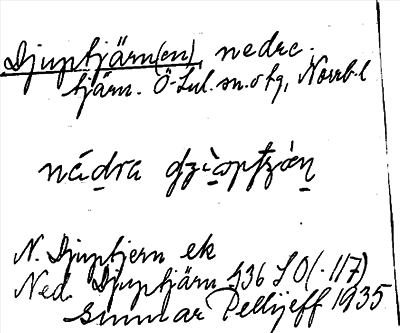 Djuptjärn(en), nedre.
tjärn. Ö-Lul. sn. o tg, Norrb. l
nádra
N. Djuptjern ek
Ned. Djuptjärn 136 SO (. 117)
Gunnar Pellijeff 1935